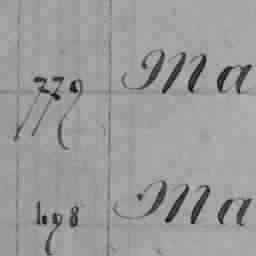 779 Ma
698 Ma